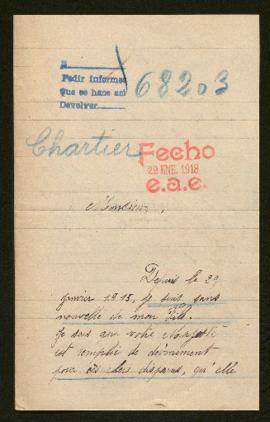 A
Pedir informes
que se hace así
Devolver
68203
Chartier
Fecho
22 ENE. 1918
e.a.e.
Monsieur,
Depuis le 29
janvier 1915, je suis sans
nouvelle de mon fils.
Je sais que votre Majesté
est remplie de dévouement
pour ces chers disparus, qu'elle